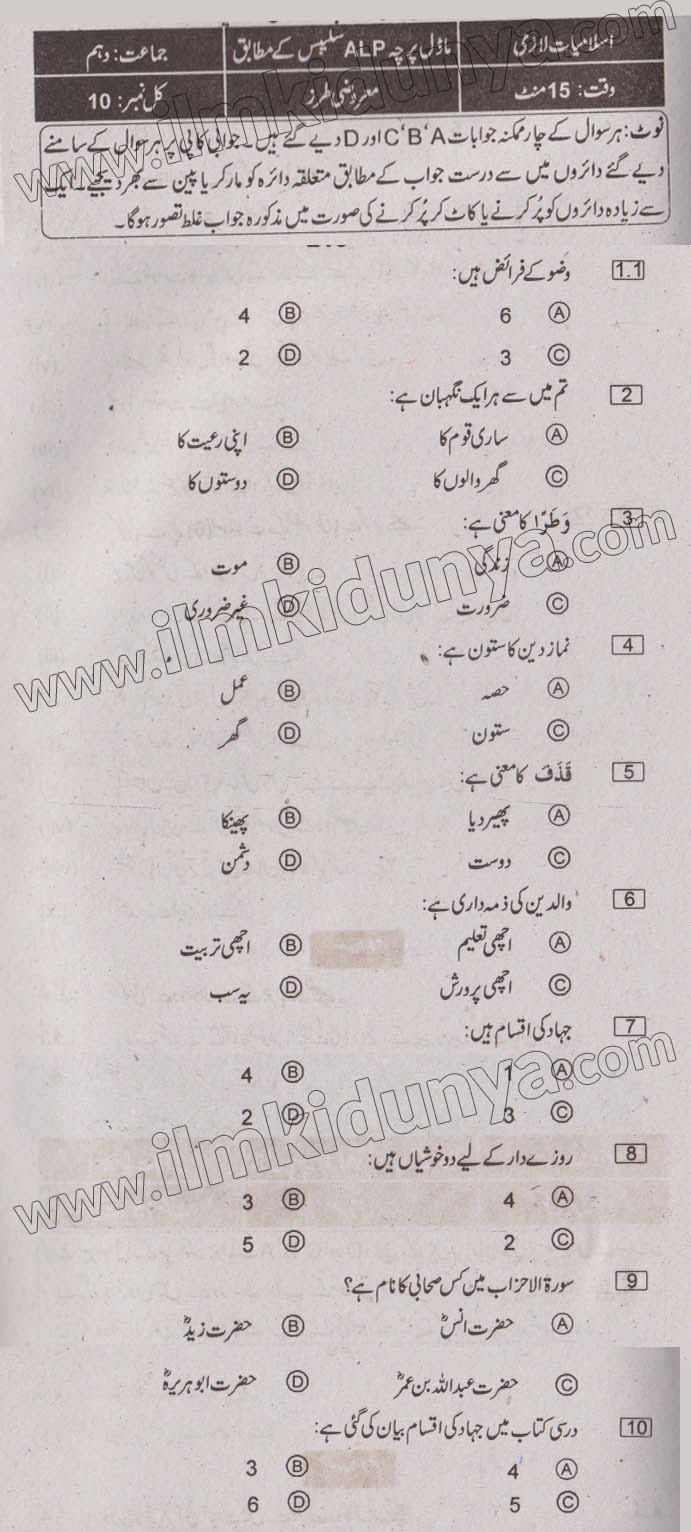 اسلامیات لازمی ماڈل پرچہ ALP سلیبس کے مطابق جماعت: دہم
وقت: 15 منٹ معروضی طرز کل نمبر: 10
نوٹ: ہر سوال کے چار ممکنہ جوابات A'B'C اور D دیے گئے ہیں۔ جوابی کاپی پر ہر سوال کے سامنے
دیے گئے دائروں میں سے درست جواب کے مطابق متعلقہ دائرہ کو مارکر یا پین سے بھر دیجیے۔ ایک
سے زیادہ دائروں کو پُر کرنے یا کاٹ کر پُر کرنے کی صورت میں مذکورہ جواب غلط تصور ہوگا۔
1.1 وضو کے فرائض ہیں:
A 6 B 4
C 3 D 2
2 تم میں سے ہر ایک نگہبان ہے:
A ساری قوم کا B اپنی رعیت کا
C گھر والوں کا D دوستوں کا
3 وَطَرًا کا معنی ہے:
A زندگی B موت
C ضرورت D غیر ضروری
4 نماز دین کا ستون ہے:
A حصہ B عمل
C ستون D گھر
5 قَذَفَ کا معنی ہے:
A پھیر دیا B پھینکا
C دوست D دشمن
6 والدین کی ذمہ داری ہے:
A اچھی تعلیم B اچھی تربیت
C اچھی پرورش D یہ سب
7 جہاد کی اقسام ہیں:
A 1 B 4
C 3 D 2
8 روزے دار کے لیے دو خوشیاں ہیں:
A 4 B 3
C 2 D 5
9 سورۃ الاحزاب میں کس صحابی کا نام ہے؟
A حضرت انسؓ B حضرت زیدؓ
C حضرت عبداللہ بن عمرؓ D حضرت ابوہریرہؓ
10 درسی کتاب میں جہاد کی اقسام بیان کی گئی ہے:
A 4 B 3
C 5 D 6
www.ilmkidunya.com
www.ilmkidunya.com
www.ilmkidunya.com